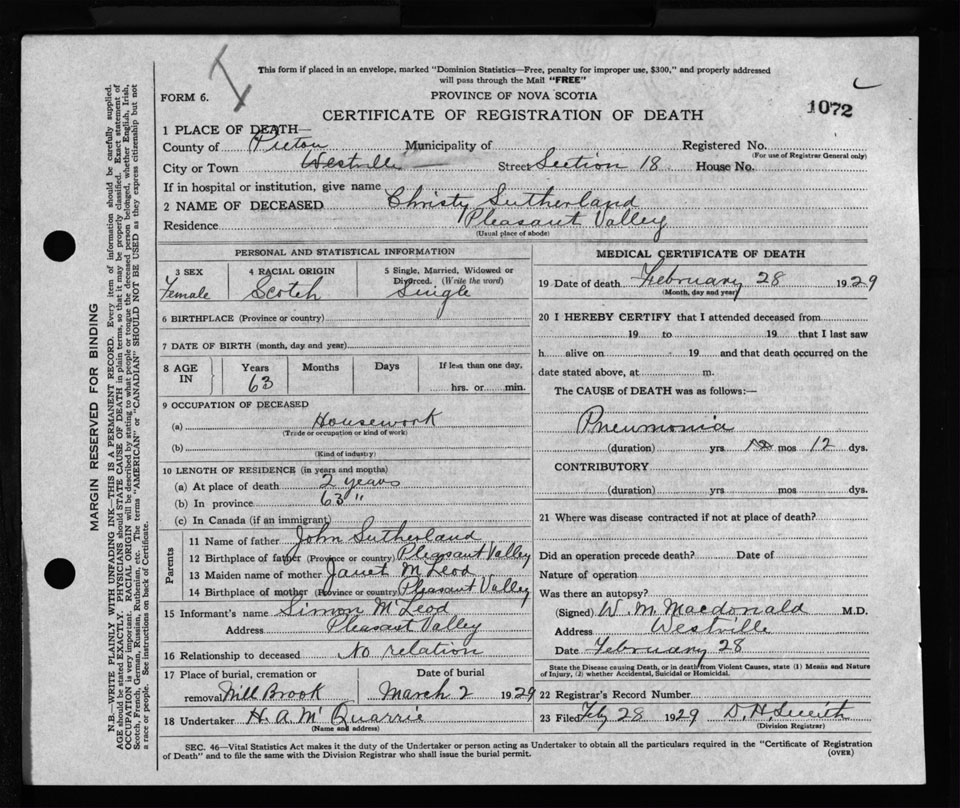 This form if placed in an envelope, marked "Dominion Statistics—Free, penalty for improper use, $300," and properly addressed
will pass through the Mail "FREE"
FORM 6.
PROVINCE OF NOVA SCOTIA
1072
CERTIFICATE OF REGISTRATION OF DEATH
1 PLACE OF DEATH—
County of Pictou Municipality of Registered No.
(For use of Registrar General only)
City or Town Westville — Street Section 18 House No.
If in hospital or institution, give name
2 NAME OF DECEASED Christy Sutherland
Residence Pleasant Valley
(Usual place of abode)
PERSONAL AND STATISTICAL INFORMATION
3 SEX 4 RACIAL ORIGIN 5 Single, Married, Widowed or Divorced. (Write the word)
Female Scotch Single
6 BIRTHPLACE (Province or country)
7 DATE OF BIRTH (month, day and year)
8 AGE IN Years Months Days If less than one day,
63 hrs. or min.
9 OCCUPATION OF DECEASED
(a) Housework
(Trade or occupation or kind of work)
(b)
(Kind of industry)
10 LENGTH OF RESIDENCE (in years and months)
(a) At place of death 2 years
(b) In province 63 "
(c) In Canada (if an immigrant)
Parents
11 Name of father John Sutherland
12 Birthplace of father (Province or country) Pleasant Valley
13 Maiden name of mother Janet McLeod
14 Birthplace of mother (Province or country) Pleasant Valley
15 Informant's name Simon McLeod
Address Pleasant Valley
16 Relationship to deceased No relation
17 Place of burial, cremation or removal Mill Brook
Date of burial
March 2 1929
18 Undertaker H. A. McQuarrie
(Name and address)
MEDICAL CERTIFICATE OF DEATH
19 Date of death February 28 1929
(Month, day and year)
20 I HEREBY CERTIFY that I attended deceased from
19 to 19 that I last saw
h alive on 19 and that death occurred on the
date stated above, at m.
The CAUSE of DEATH was as follows:—
Pneumonia
(duration) yrs mos 12 dys.
CONTRIBUTORY
(duration) yrs mos dys.
21 Where was disease contracted if not at place of death?
Did an operation precede death? Date of
Nature of operation
Was there an autopsy?
(Signed) W. M. Macdonald M.D.
Address Westville
Date February 28
State the Disease causing Death, or in death from Violent Causes, state (1) Means and Nature
of Injury, (2) whether Accidental, Suicidal or Homicidal.
22 Registrar's Record Number
23 Filed Feb 28 1929 D. H. Smith
(Division Registrar)
SEC. 46—Vital Statistics Act makes it the duty of the Undertaker or person acting as Undertaker to obtain all the particulars required in the "Certificate of Registration
of Death" and to file the same with the Division Registrar who shall issue the burial permit.
(OVER)
MARGIN RESERVED FOR BINDING
N.B.—WRITE PLAINLY WITH UNFADING INK—THIS IS A PERMANENT RECORD. Every item of information should be carefully supplied.
AGE should be stated EXACTLY. PHYSICIANS should STATE CAUSE OF DEATH in plain terms, so that it may be properly classified. Exact statement of
OCCUPATION is very important. RACIAL ORIGIN will be described by stating to what people or tongue the deceased person belonged, whether English, Irish,
Scotch, French, German, Russian, Ruthenian, etc. The terms "AMERICAN" or "CANADIAN" SHOULD NOT BE USED as they express citizenship but not
a race or people. See instructions on back of Certificate.